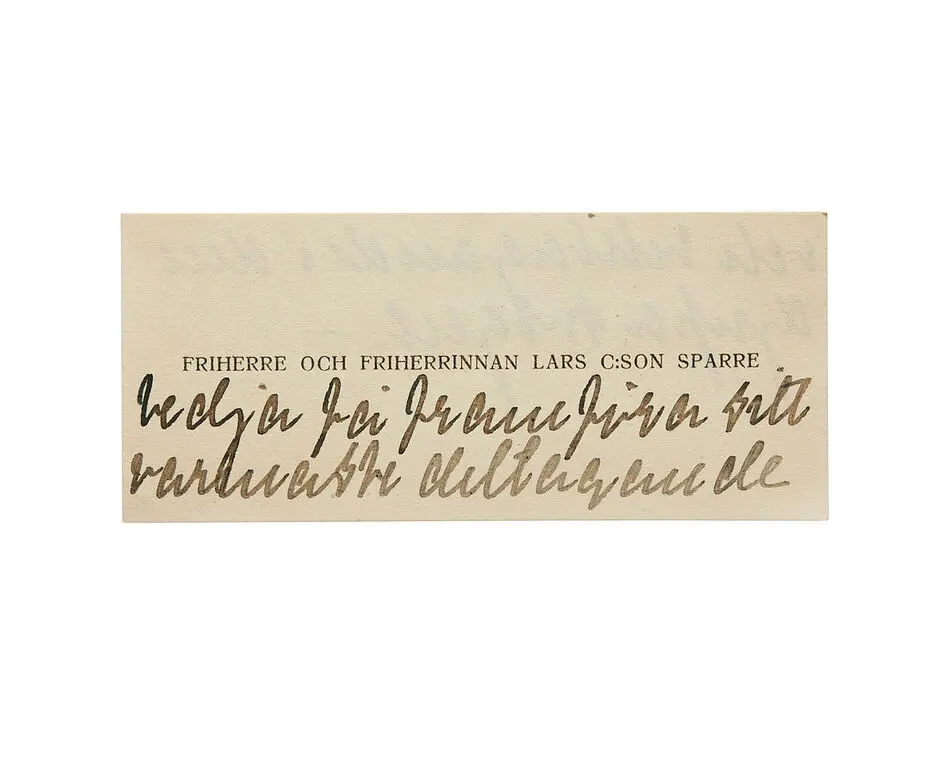 FRIHERRE OCH FRIHERRINNAN LARS C:SON SPARRE
bedja få framföra sitt
varmaste deltagande